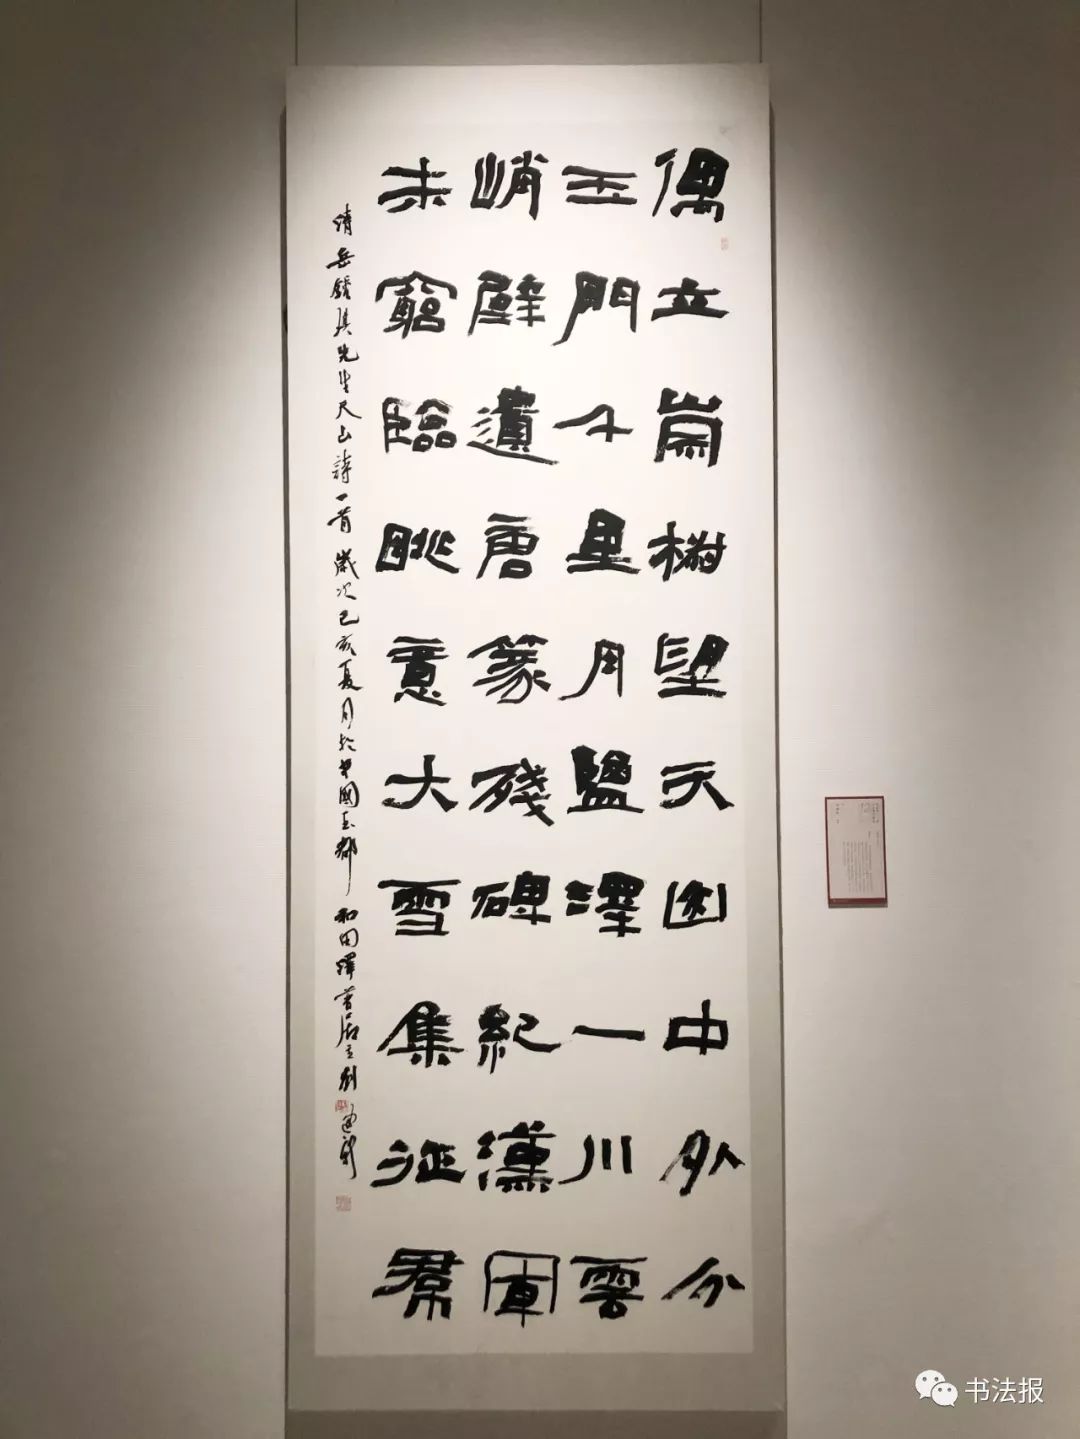 偶立崇樹望天因中外分
玉門千里月鹽澤一川雲
峭壁遺唐篆殘碑紀漢軍
未窮臨眺意大雪集征羣
清岳鍾琪先生天山詩一首歲次己亥夏月於中國玉都和田
书法报